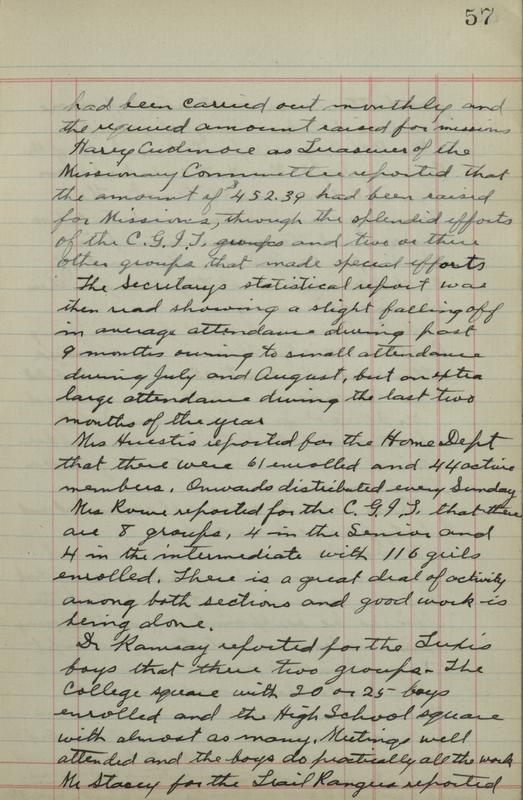 57
had been carried out monthly and
the required amount raised for missions
Harry Cudmore as Treasurer of the
Missionary Committee reported that
the amount of $452.39 had been raised
for Missions, through the splendid efforts
of the C.G.I.T. groups and two or three
other groups that made special efforts
The Secretarys statistical report was
then read showing a slight falling off
in average attendance during past
9 months owing to small attendance
during July and August, but an extra
large attendance during the last two
months of the year
Mrs Huestis reported for the Home Dept
that there were 61 enrolled and 44 active
members. Onwards distributed every Sunday
Mrs Rowe reported for the C.G.I.T. that there
are 8 groups, 4 in the Senior and
4 in the intermediate with 116 girls
enrolled. There is a great deal of activity
among both sections and good work is
being done.
Dr Ramsay reported for the Tuxis
boys that there two groups - The
College square with 20 or 25 boys
enrolled and the High School square
with almost as many. Meetings well
attended and the boys do practically all the work
Mr Stacey for the Trail Rangers reported